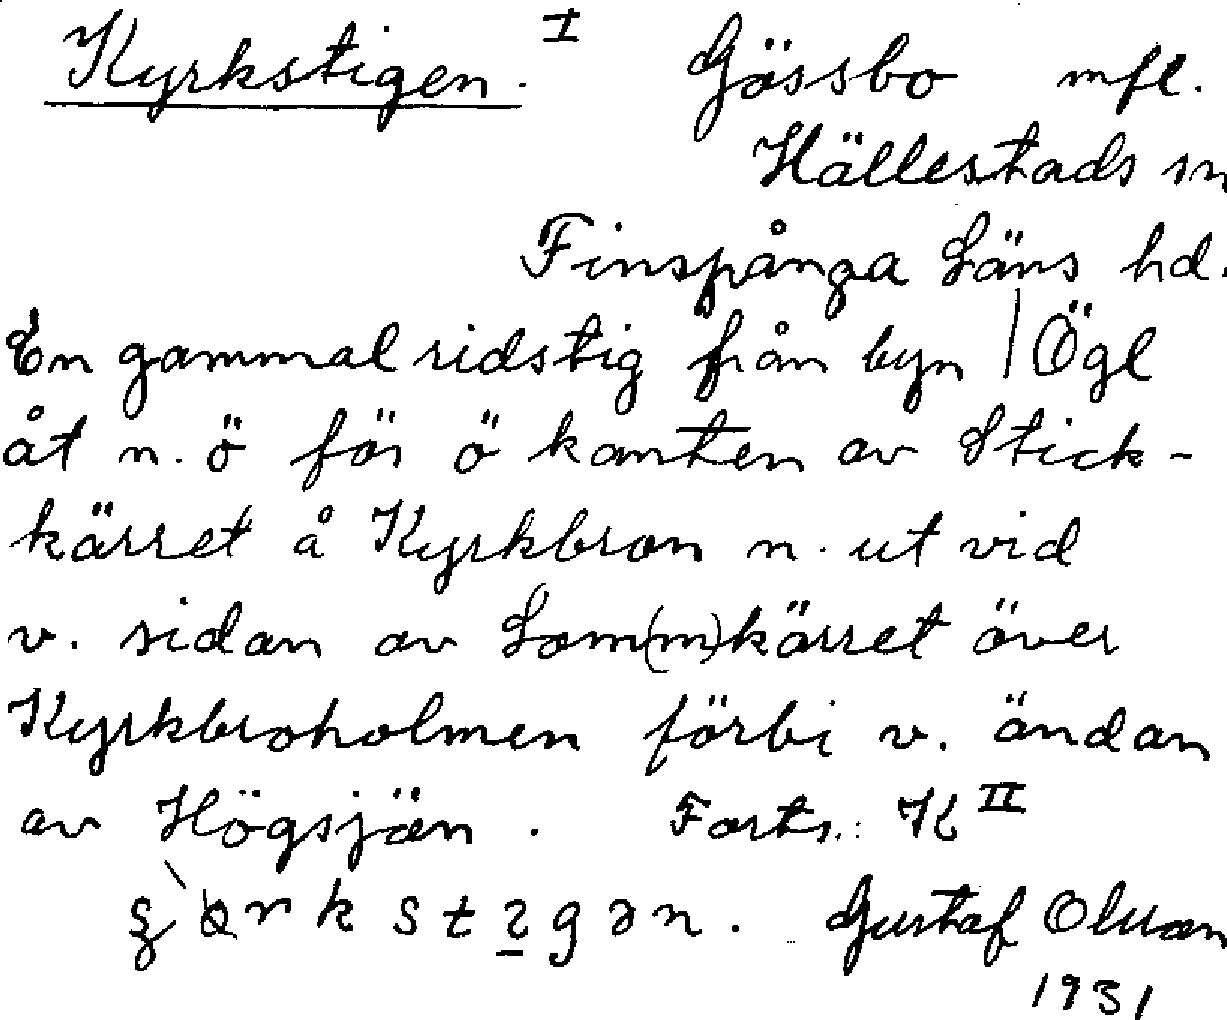 Kyrkstigen. I Gössbo mfl.
Hällestads sn
Finspånga Läns hd.
En gammal ridstig från byn / Ögl
åt n. ö för ö kanten av Stick-
kärret å Kyrkbron n. ut vid
v. sidan av Lom(m)kärret över
Kyrkbroholmen förbi v. ändan
av Högsjön. Forts.: K II
Gustaf Olsson
1931